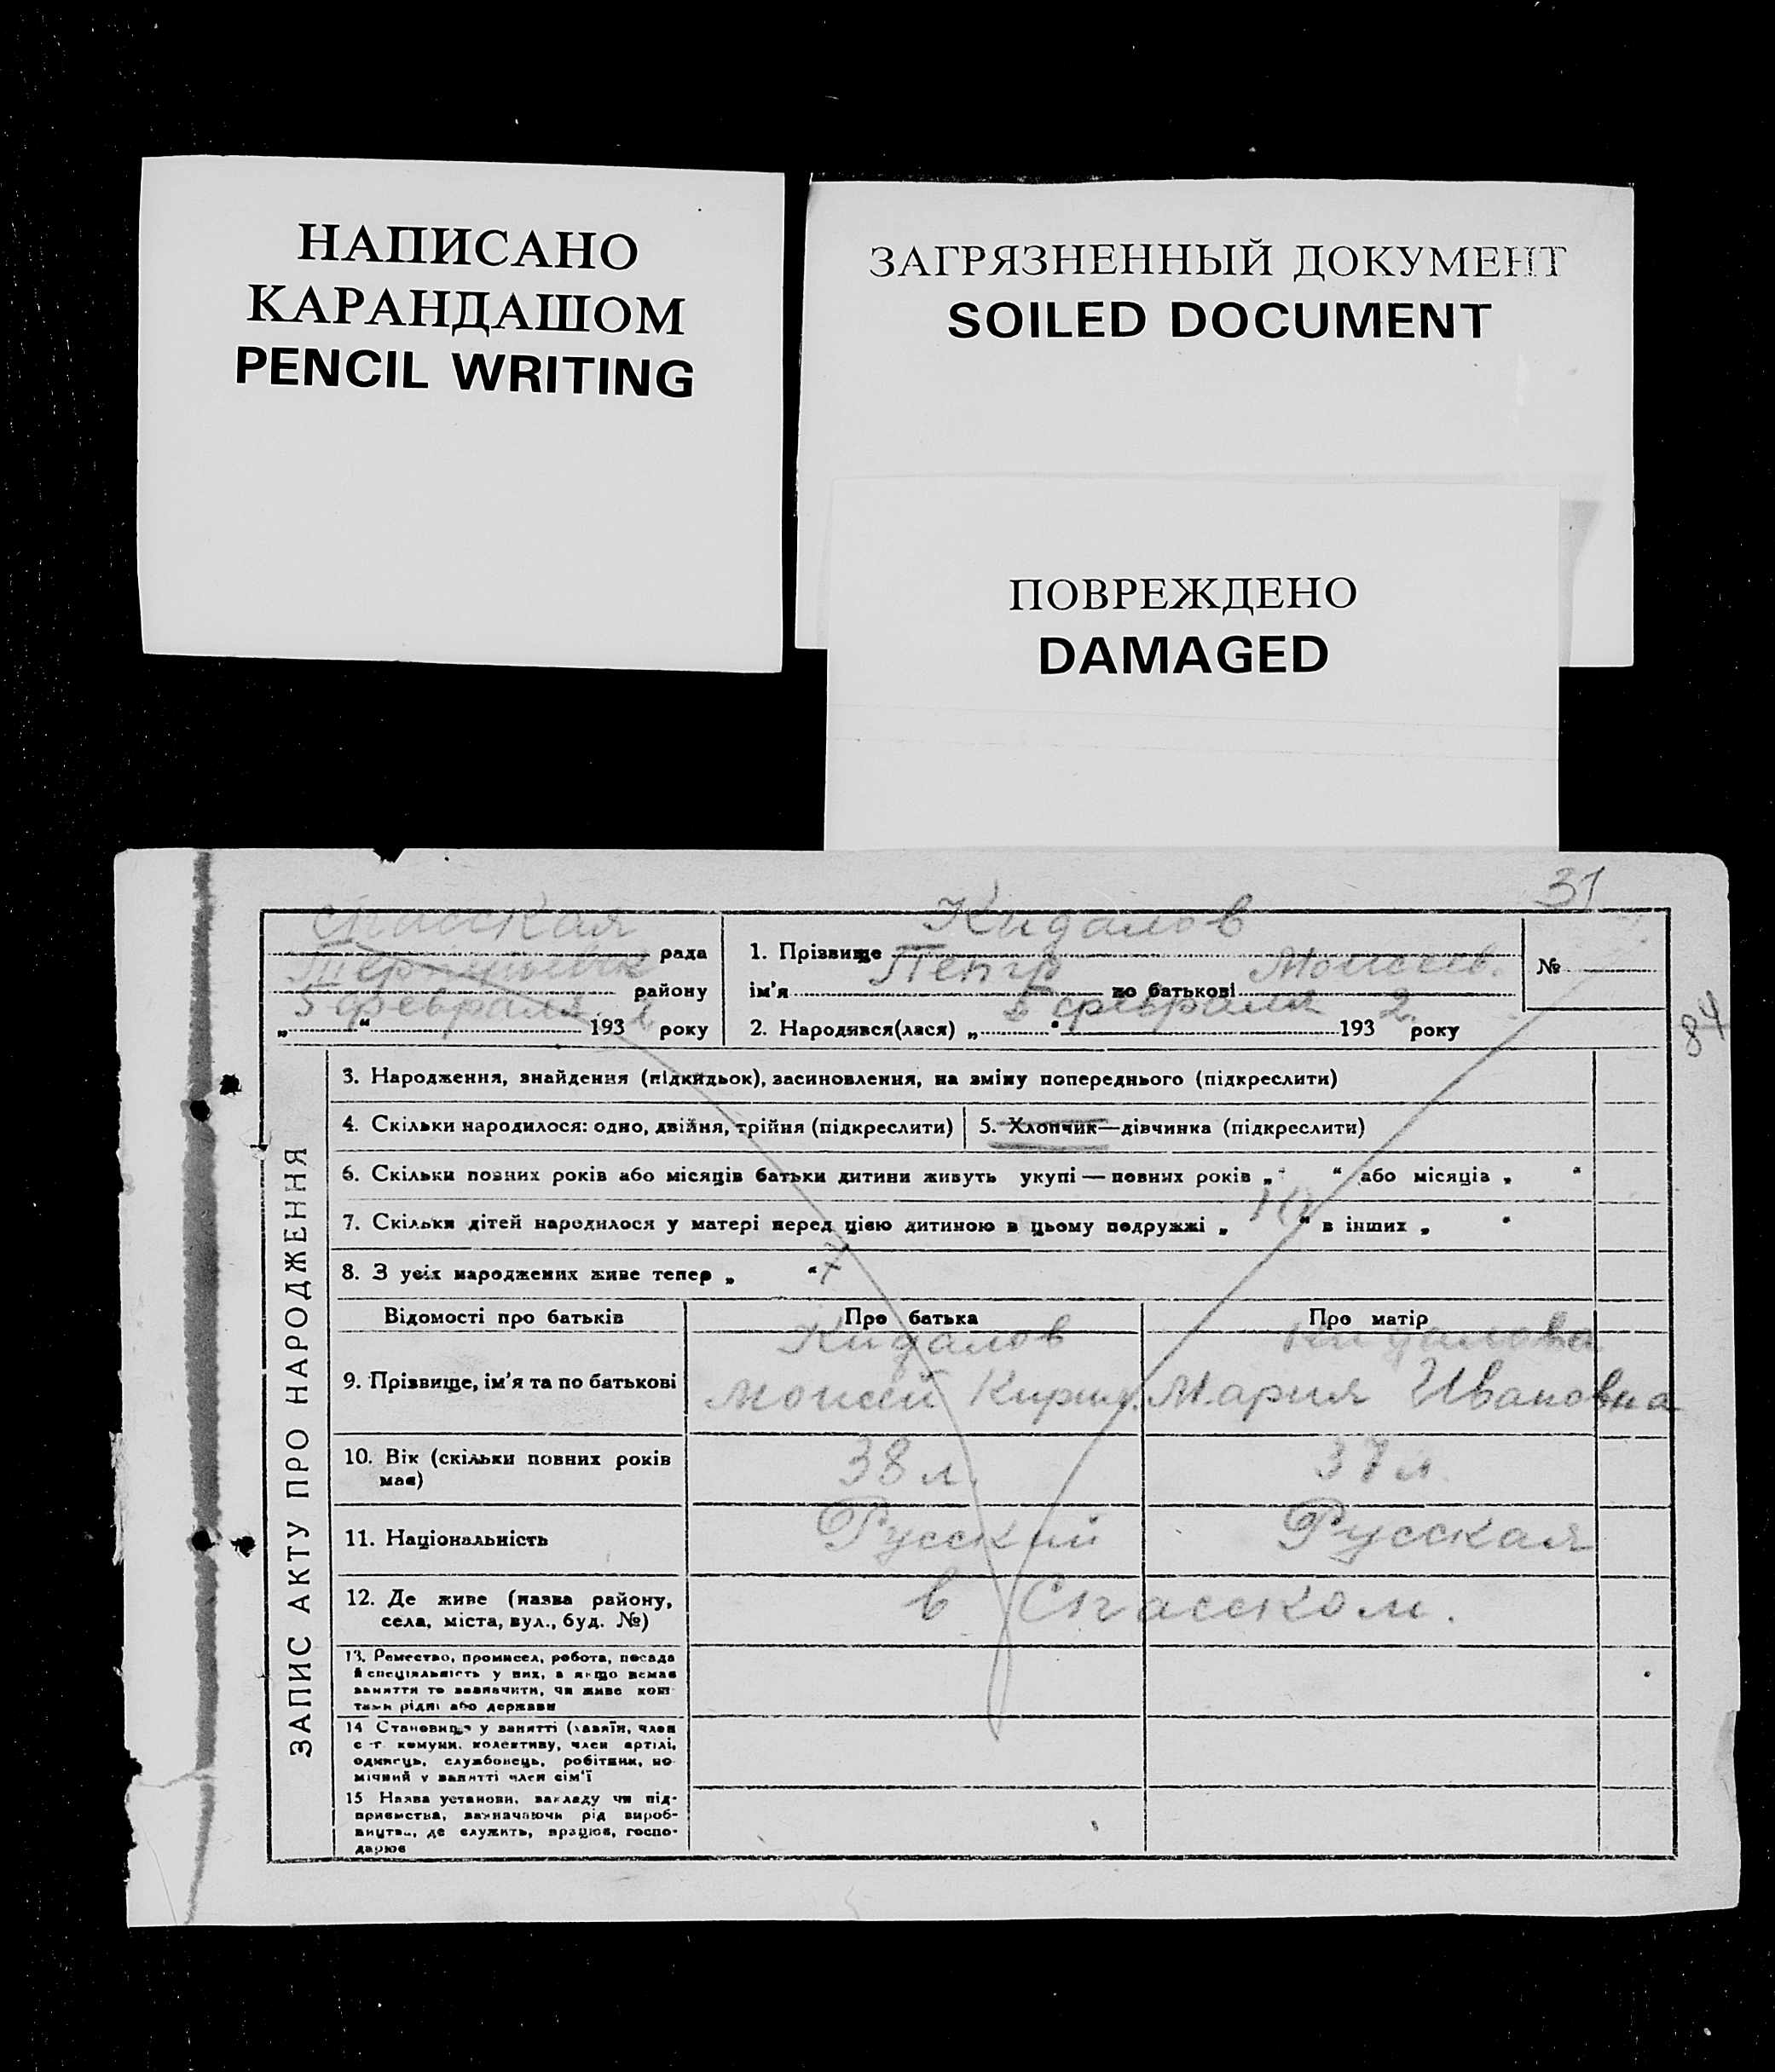 НАПИСАНО
КАРАНДАШОМ
PENCIL WRITING
ЗАГРЯЗНЕННЫЙ ДОКУМЕНТ
SOILED DOCUMENT
ПОВРЕЖДЕНО
DAMAGED
31
84
Спасская рада
району
5 февраля 1932 року
1. Прізвище Кидалов
ім'я Петр по батькові Моисеев.
2. Народився(лася) „5“ февраля 1932 року
№
ЗАПИС АКТУ ПРО НАРОДЖЕННЯ
3. Народження, знайдення (підкидьок), засиновлення, на зміну попереднього (підкреслити)
4. Скільки народилося: одно, двійня, трійня (підкреслити)
5. Хлопчик—дівчинка (підкреслити)
6. Скільки повних років або місяців батьки дитини живуть укупі — повних років „ “ або місяців „ “
7. Скільки дітей народилося у матері перед цією дитиною в цьому подружжі „ 10 “ в інших „ “
8. З усіх народжених живе тепер „ “ 7
Відомості про батьків
Про батька
Про матір
9. Прізвище, ім'я та по батькові
Кидалов
Моисей Кирил.
Кидалова
Мария Ивановна
10. Вік (скільки повних років має)
38 л.
37 л.
11. Національність
Русский
Русская
12. Де живе (назва району,
села, міста, вул., буд. №)
в Спасском.
13. Ремество, промисел, робота, посада
й спеціяльність у них, а якщо немає
заняття то зазначити, чи живе кош-
тами рідні або держави
14 Становище у занятті (хазяїн, член
с -г. комуни, колективу, член артілі,
одинець, службовець, робітник, по-
мічний у занятті член сім'ї
15 Назва установи, закладу чи під-
приємства, зазначаючи рід вироб-
ництва, де служить, працює, госпо-
дарює